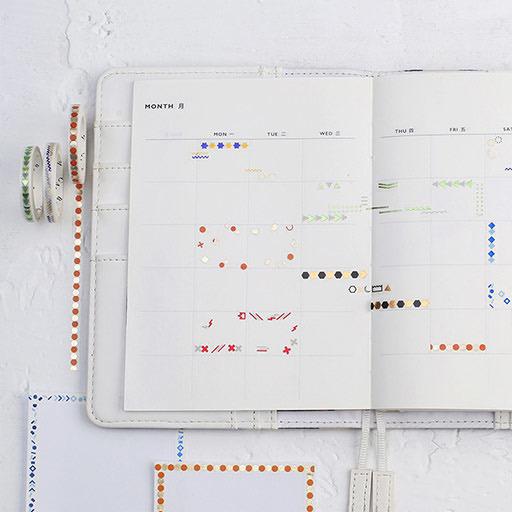 MONTH 月
MON 一
TUE 二
WED 三
THU 四
FRI 五